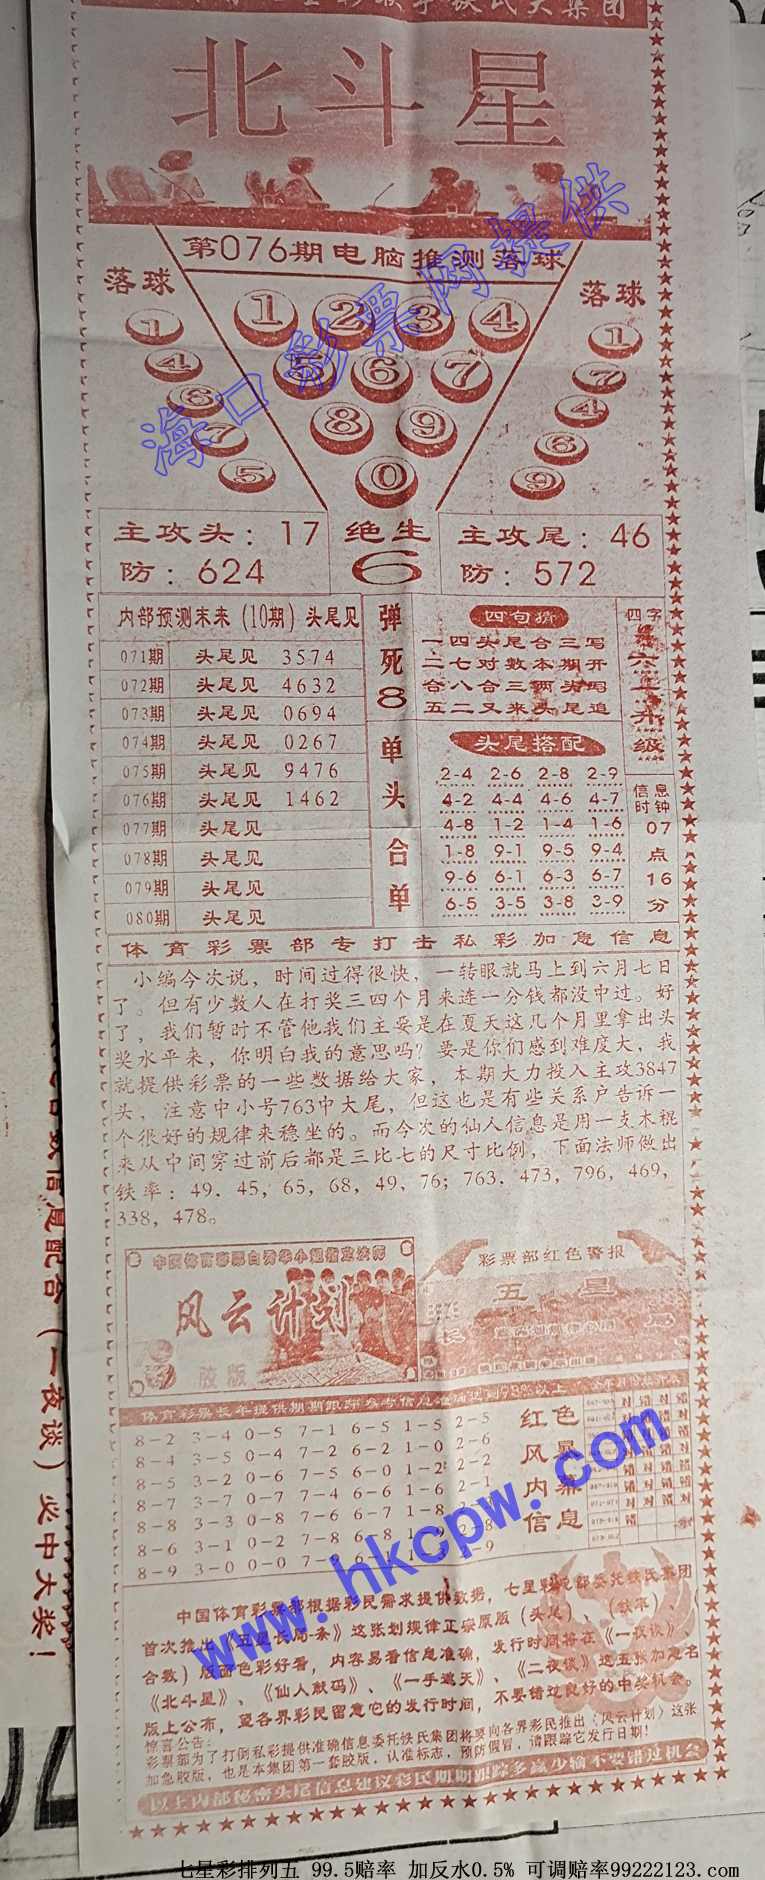 北斗星
第076期电脑推测落球
落球
落球
1 2 3 4
5 6 7
8 9
0
1
4
6
7
5
1
7
4
6
9
海口彩票网提供
主攻头：17
防：624
绝生
6
主攻尾：46
防：572
内部预测末来（10期）头尾见
071期 头尾见 3574
072期 头尾见 4632
073期 头尾见 0694
074期 头尾见 0267
075期 头尾见 9476
076期 头尾见 1462
077期 头尾见
078期 头尾见
079期 头尾见
080期 头尾见
弹死8单头
合单
四句猜
一四头尾合三写
二七对数本期开
合八合三两头写
五二又来头尾追
头尾搭配
2-4 2-6 2-8 2-9
4-2 4-4 4-6 4-7
4-8 1-2 1-4 1-6
1-8 9-1 9-5 9-4
9-6 6-1 6-3 6-7
6-5 3-5 3-8 3-9
四字
级
信息
时钟
07
点
16
分
体育彩票部专打击私彩加急信息
小编今次说，时间过得很快，一转眼就马上到六月七日
了。但有少数人在打奖三四个月来连一分钱都没中过。好
了，我们暂时不管他我们主要是在夏天这几个月里拿出头
奖水平来，你明白我的意思吗？要是你们感到难度大，我
就提供彩票的一些数据给大家，本期大力投入主攻3847
头，注意中小号763中大尾，但这也是有些关系户告诉一
个很好的规律来稳坐的。而今次的仙人信息是用一支木棍
来从中间穿过前后都是三比七的尺寸比例，下面法师做出
铁率：49．45，65，68，49，76；763．473，796，469，
338，478。
风云计划
胶版
彩票部红色警报
五星
体育彩票长年提供期期跟踪参考信息准确达到98%以上
8-2 3-4 0-5 7-1 6-5 1-5 2-5
8-4 3-5 0-4 7-2 6-2 1-0 2-6
8-5 3-2 0-6 7-5 6-0 1-2 2-2
8-7 3-7 0-7 7-4 6-6 1-6 2-1
8-8 3-3 0-8 7-6 6-7 1-8
8-6 3-1 0-2 7-8 6-8 1-9 2-8
8-9 3-0 0-0
红色
风暴
内幕
信息
www.hkcpw.com
中国体育彩票部根据彩民需求提供数据，七星彩票部委托铁氏集团
首次推出《五星长局一条》这张划规律正宗原版（头尾）、（铁率）
合数）版面色彩好看，内容易看信息准确，发行时间将在《一夜谈》
《北斗星》、《仙人献码》、《一手遮天》、《二夜谈》这五张加急名
版上公布，望各界彩民留意它的发行时间，不要错过良好的中奖机会。
惊喜公告：
彩票部为了打倒私彩提供准确信息委托铁氏集团将要向各界彩民推出《风云计划》这张
加急胶版，也是本集团第一套胶版，认准标志，预防假冒，请跟踪它发行日期！
以上内部秘密头尾信息建议彩民期期跟踪多赢少输不要错过机会
信息配合（一夜谈）必中大奖！
七星彩排列五 99.5赔率 加反水0.5% 可调赔率99222123.com